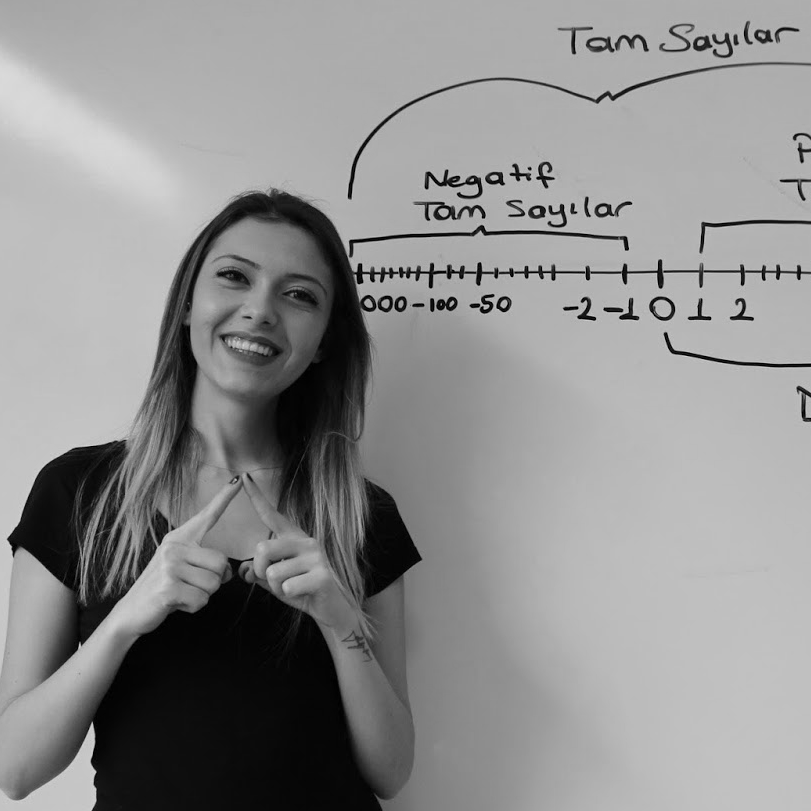 Tam Sayılar
Negatif
Tam Sayılar
000 -100 -50 -2 -1 0 1 2